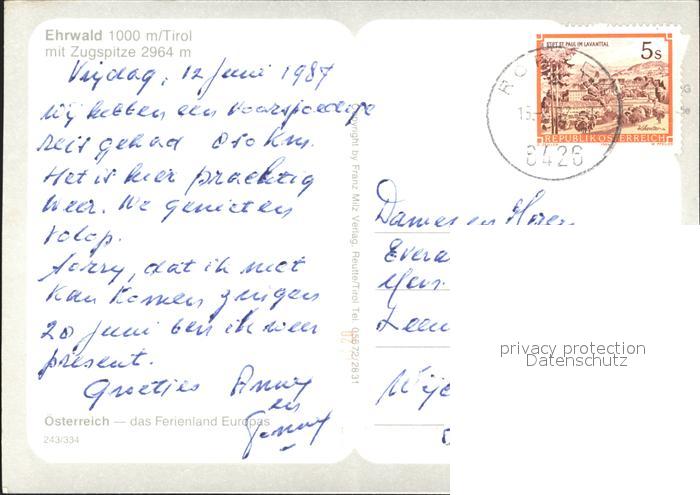 Ehrwald 1000 m/Tirol
mit Zugspitze 2964 m
Vrijdag, 12 Juni 1987
Wij hebben een voorspoedige
reis gehad 850 km.
Het is hier prachtig
weer. We genieten
volop.
Sorry, dat ik niet
kan komen zingen
20 juni ben ik weer
present.
Groetjes Anny
en
Gerrit
Österreich — das Ferienland Europas
243/334
Copyright by Franz Milz Verlag, Reutte/Tirol Tel. 05672/2831
STIFT ST. PAUL IM LAVANTTAL
5 S
REPUBLIK ÖSTERREICH
6426
Dames en Heren
privacy protection
Datenschutz